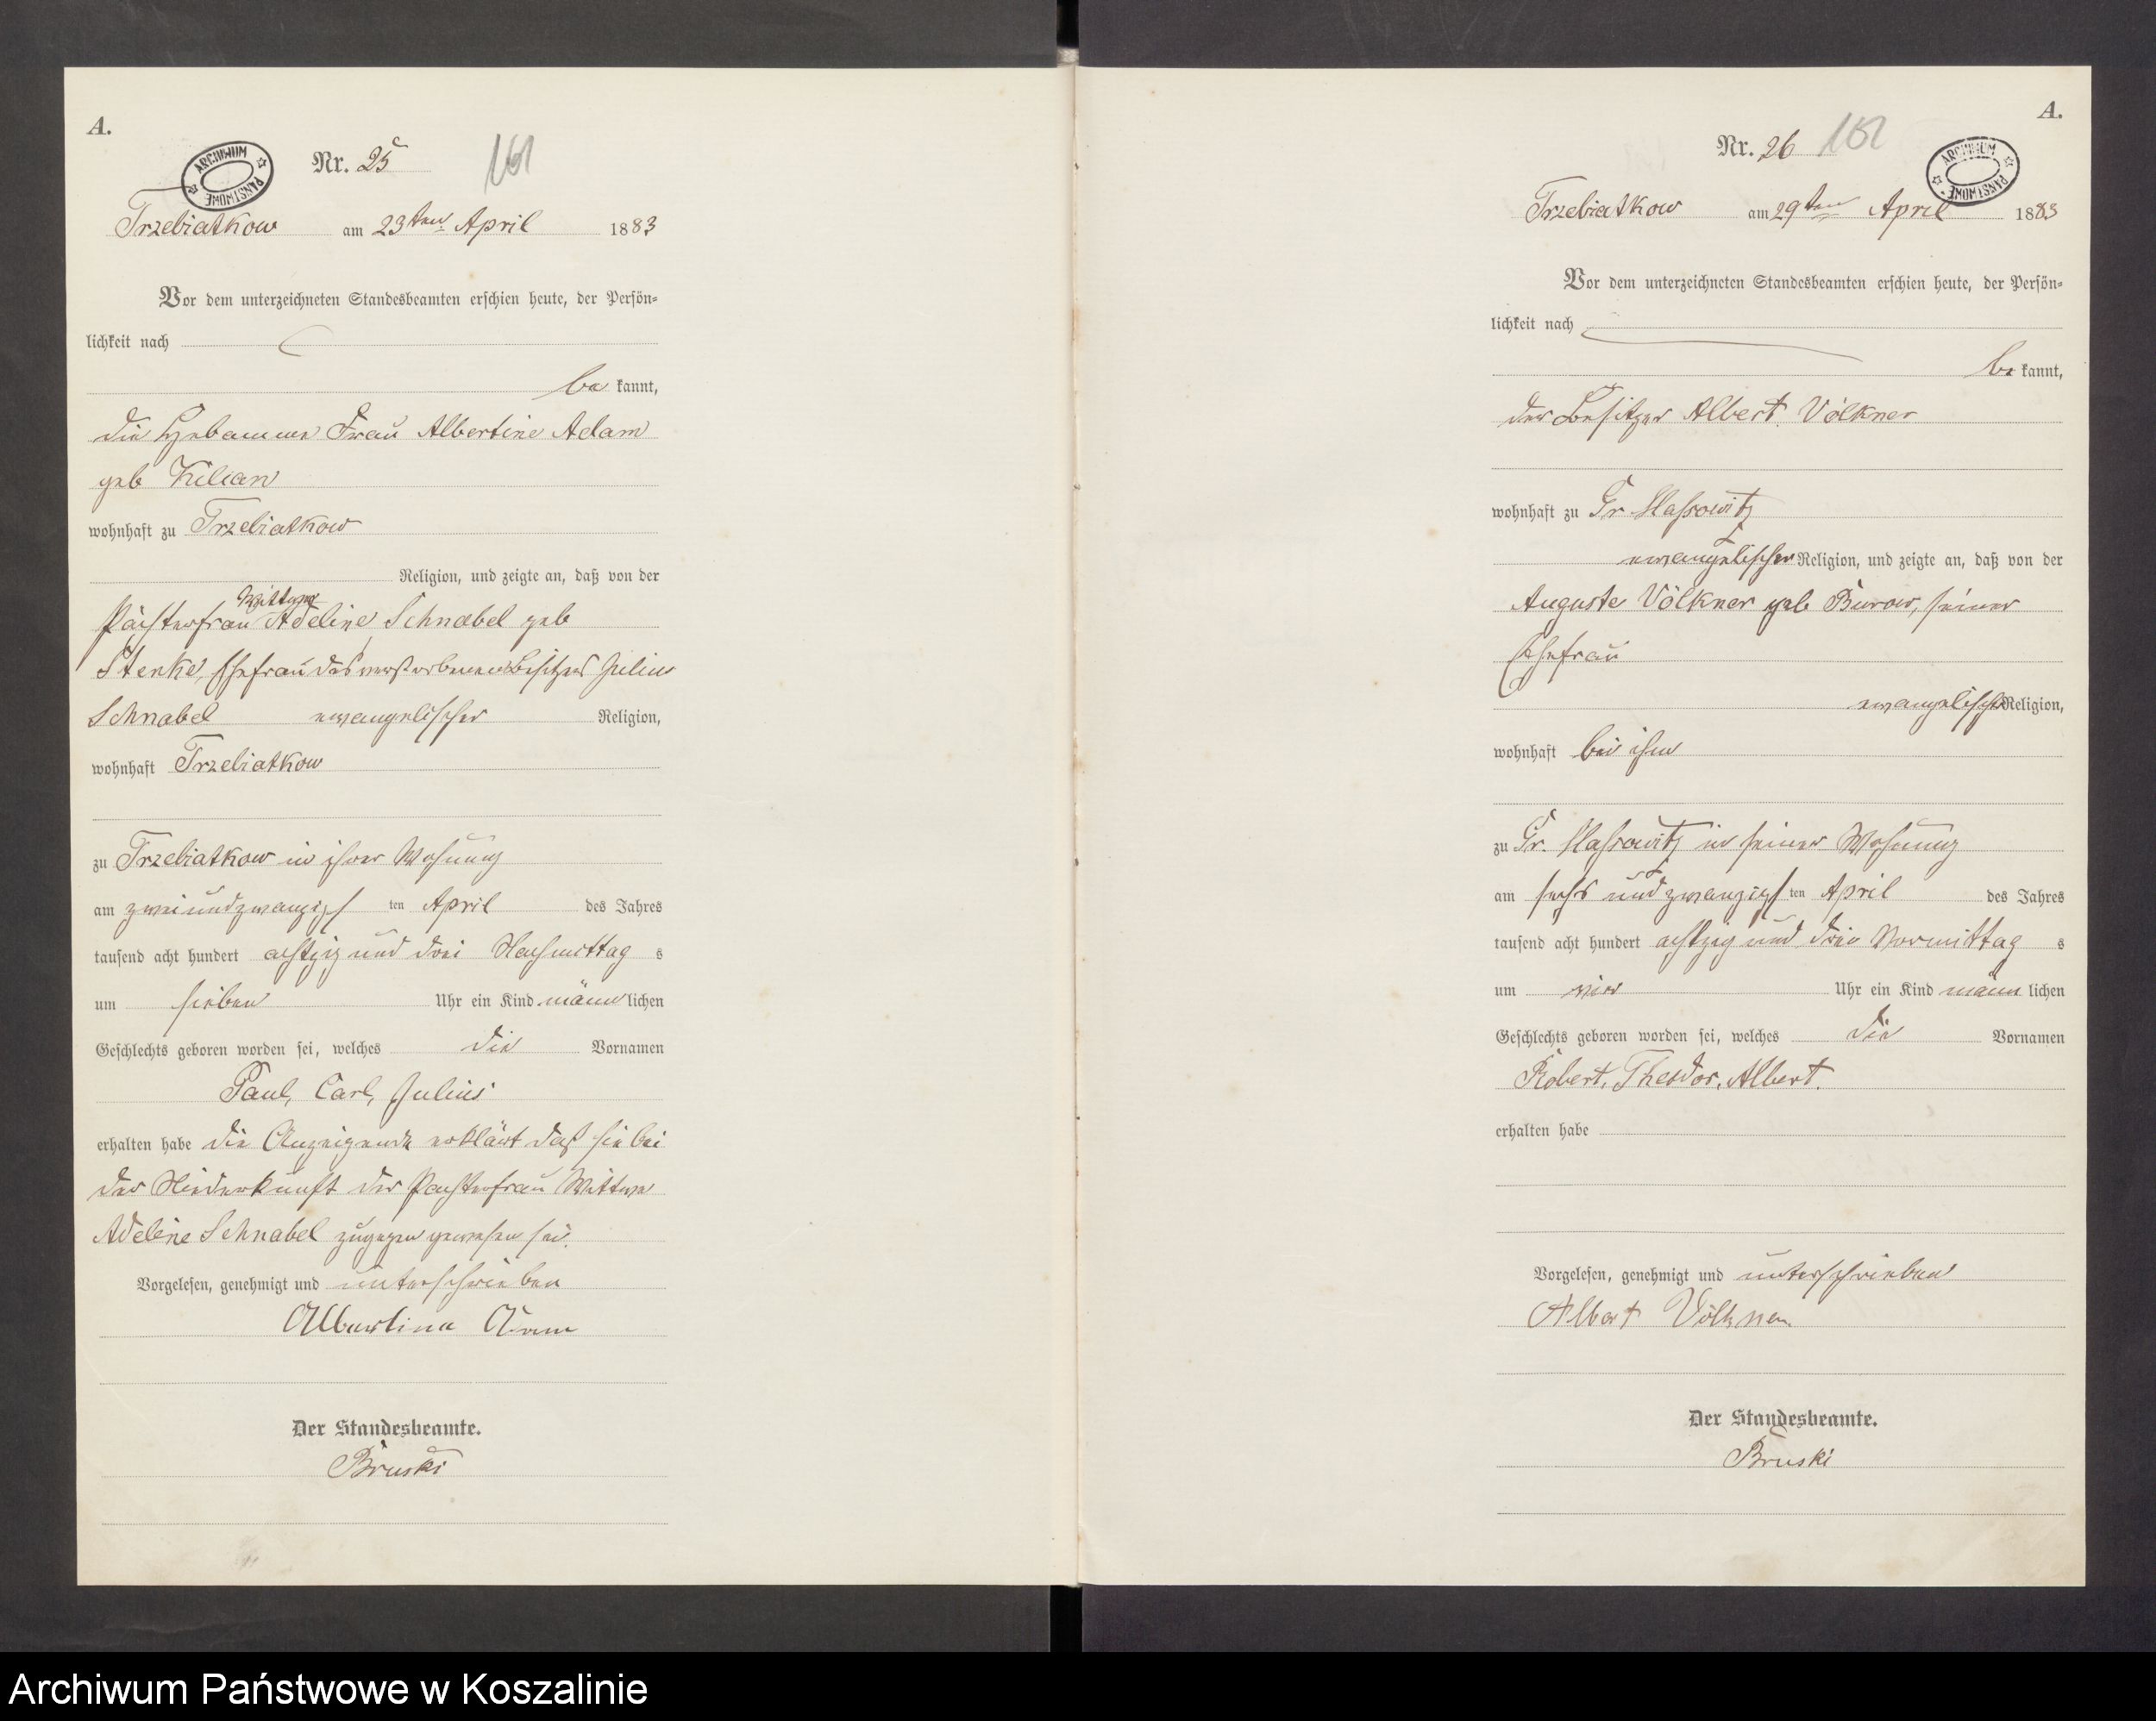 A.
ARCHIWUM PAŃSTWOWE
Nr. 25
161
Trzebiatkow am 23ten April 1883
Vor dem unterzeichneten Standesbeamten erschien heute, der Persön-
lichkeit nach
be kannt,
die Hebamme Frau Albertine Adam
geb Kilian
wohnhaft zu Trzebiatkow
Religion, und zeigte an, daß von der
Wittwe
Pächterfrau Adeline Schnabel geb
Stenke, Ehefrau des verstorbenen Besitzers Julius
Schnabel evangelischer Religion,
wohnhaft Trzebiatkow
zu Trzebiatkow in ihrer Wohnung
am zweiundzwanzigsten April des Jahres
tausend acht hundert achtzig und drei Nachmittag s
um sieben Uhr ein Kind männlichen
Geschlechts geboren worden sei, welches die Vornamen
Paul, Carl, Julius
erhalten habe die Anzeigende erklärt daß sie bei
der Niederkunft der Pächterfrau Wittwe
Adeline Schnabel zugegen gewesen sei.
Vorgelesen, genehmigt und unterschrieben
Albertine Adam
Der Standesbeamte.
Bruski
A.
Nr. 26
162
ARCHIWUM PAŃSTWOWE
Trzebiatkow am 29ten April 1883
Vor dem unterzeichneten Standesbeamten erschien heute, der Persön-
lichkeit nach
be kannt,
der Besitzer Albert Völkner
wohnhaft zu Gr Massowitz
evangelischer Religion, und zeigte an, daß von der
Auguste Völkner geb Burow, seiner
Ehefrau
evangelischer Religion,
wohnhaft bei ihm
zu Gr. Massowitz in seiner Wohnung
am sechs und zwanzigsten April des Jahres
tausend acht hundert achtzig und drei Vormittag s
um vier Uhr ein Kind männlichen
Geschlechts geboren worden sei, welches die Vornamen
Robert, Theodor, Albert.
erhalten habe
Vorgelesen, genehmigt und unterschrieben
Albert Völkner
Der Standesbeamte.
Bruski
Archiwum Państwowe w Koszalinie